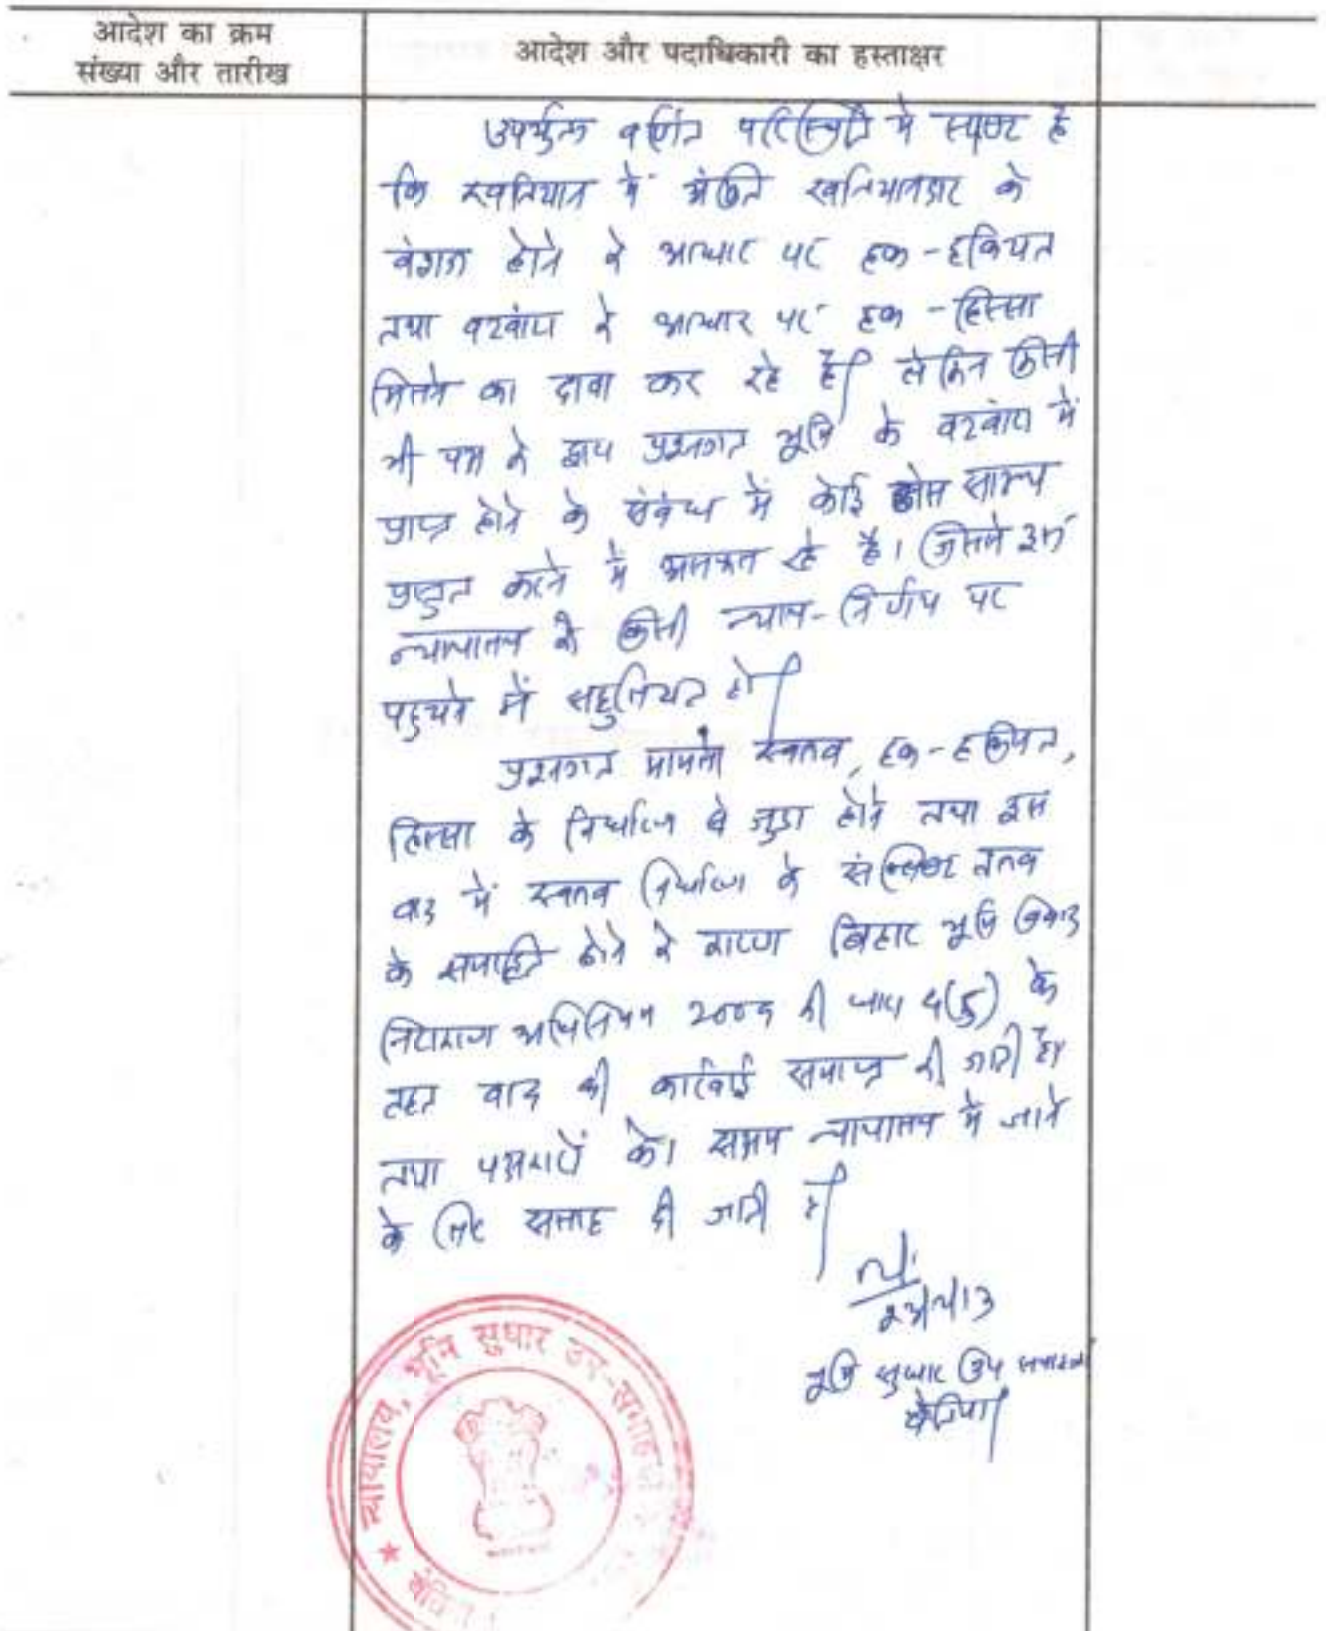 आदेश का क्रम
संख्या और तारीख
आदेश और पदाधिकारी का हस्ताक्षर
उपर्युक्त वर्णित परिस्थिति मे स्पष्ट है
कि खतियान में अंकित खतियानदार के
वंशज होने के आधार पर हक - हकियत
तथा बटवांरा के आधार पर हक - हिस्सा
मिलने का दावा कर रहे हैं। लेकिन किसी
भी पक्ष के द्वारा प्रश्नगत भूमि के बटवांरा में
प्राप्त होने के संबंध में कोई ठोस साक्ष्य
प्रस्तुत करने में असफल रहे है। जिससे इस
न्यायालय को किसी न्याय-निर्णय पर
पहुचने में सहुलियत हो।
प्रश्नगत मामला स्वत्व, हक-हकियत,
हिस्सा के निर्धारण से जुड़ा होने तथा इस
वाद में स्वत्व निर्धारण के संश्लिष्ट तत्व
के समाहित होने के कारण बिहार भूमि विवाद
निराकरण अधिनियम 2009 की धारा 4(5) के
तहत वाद की कार्रवाई समाप्त की जाती है।
तथा पक्षकारों को सक्षम न्यायालय में जाने
के लिए सलाह दी जाती है।
भूमि सुधार उप समाहर्ता
बेतिया
★ न्यायालय, भूमि सुधार उप-समाहर्ता